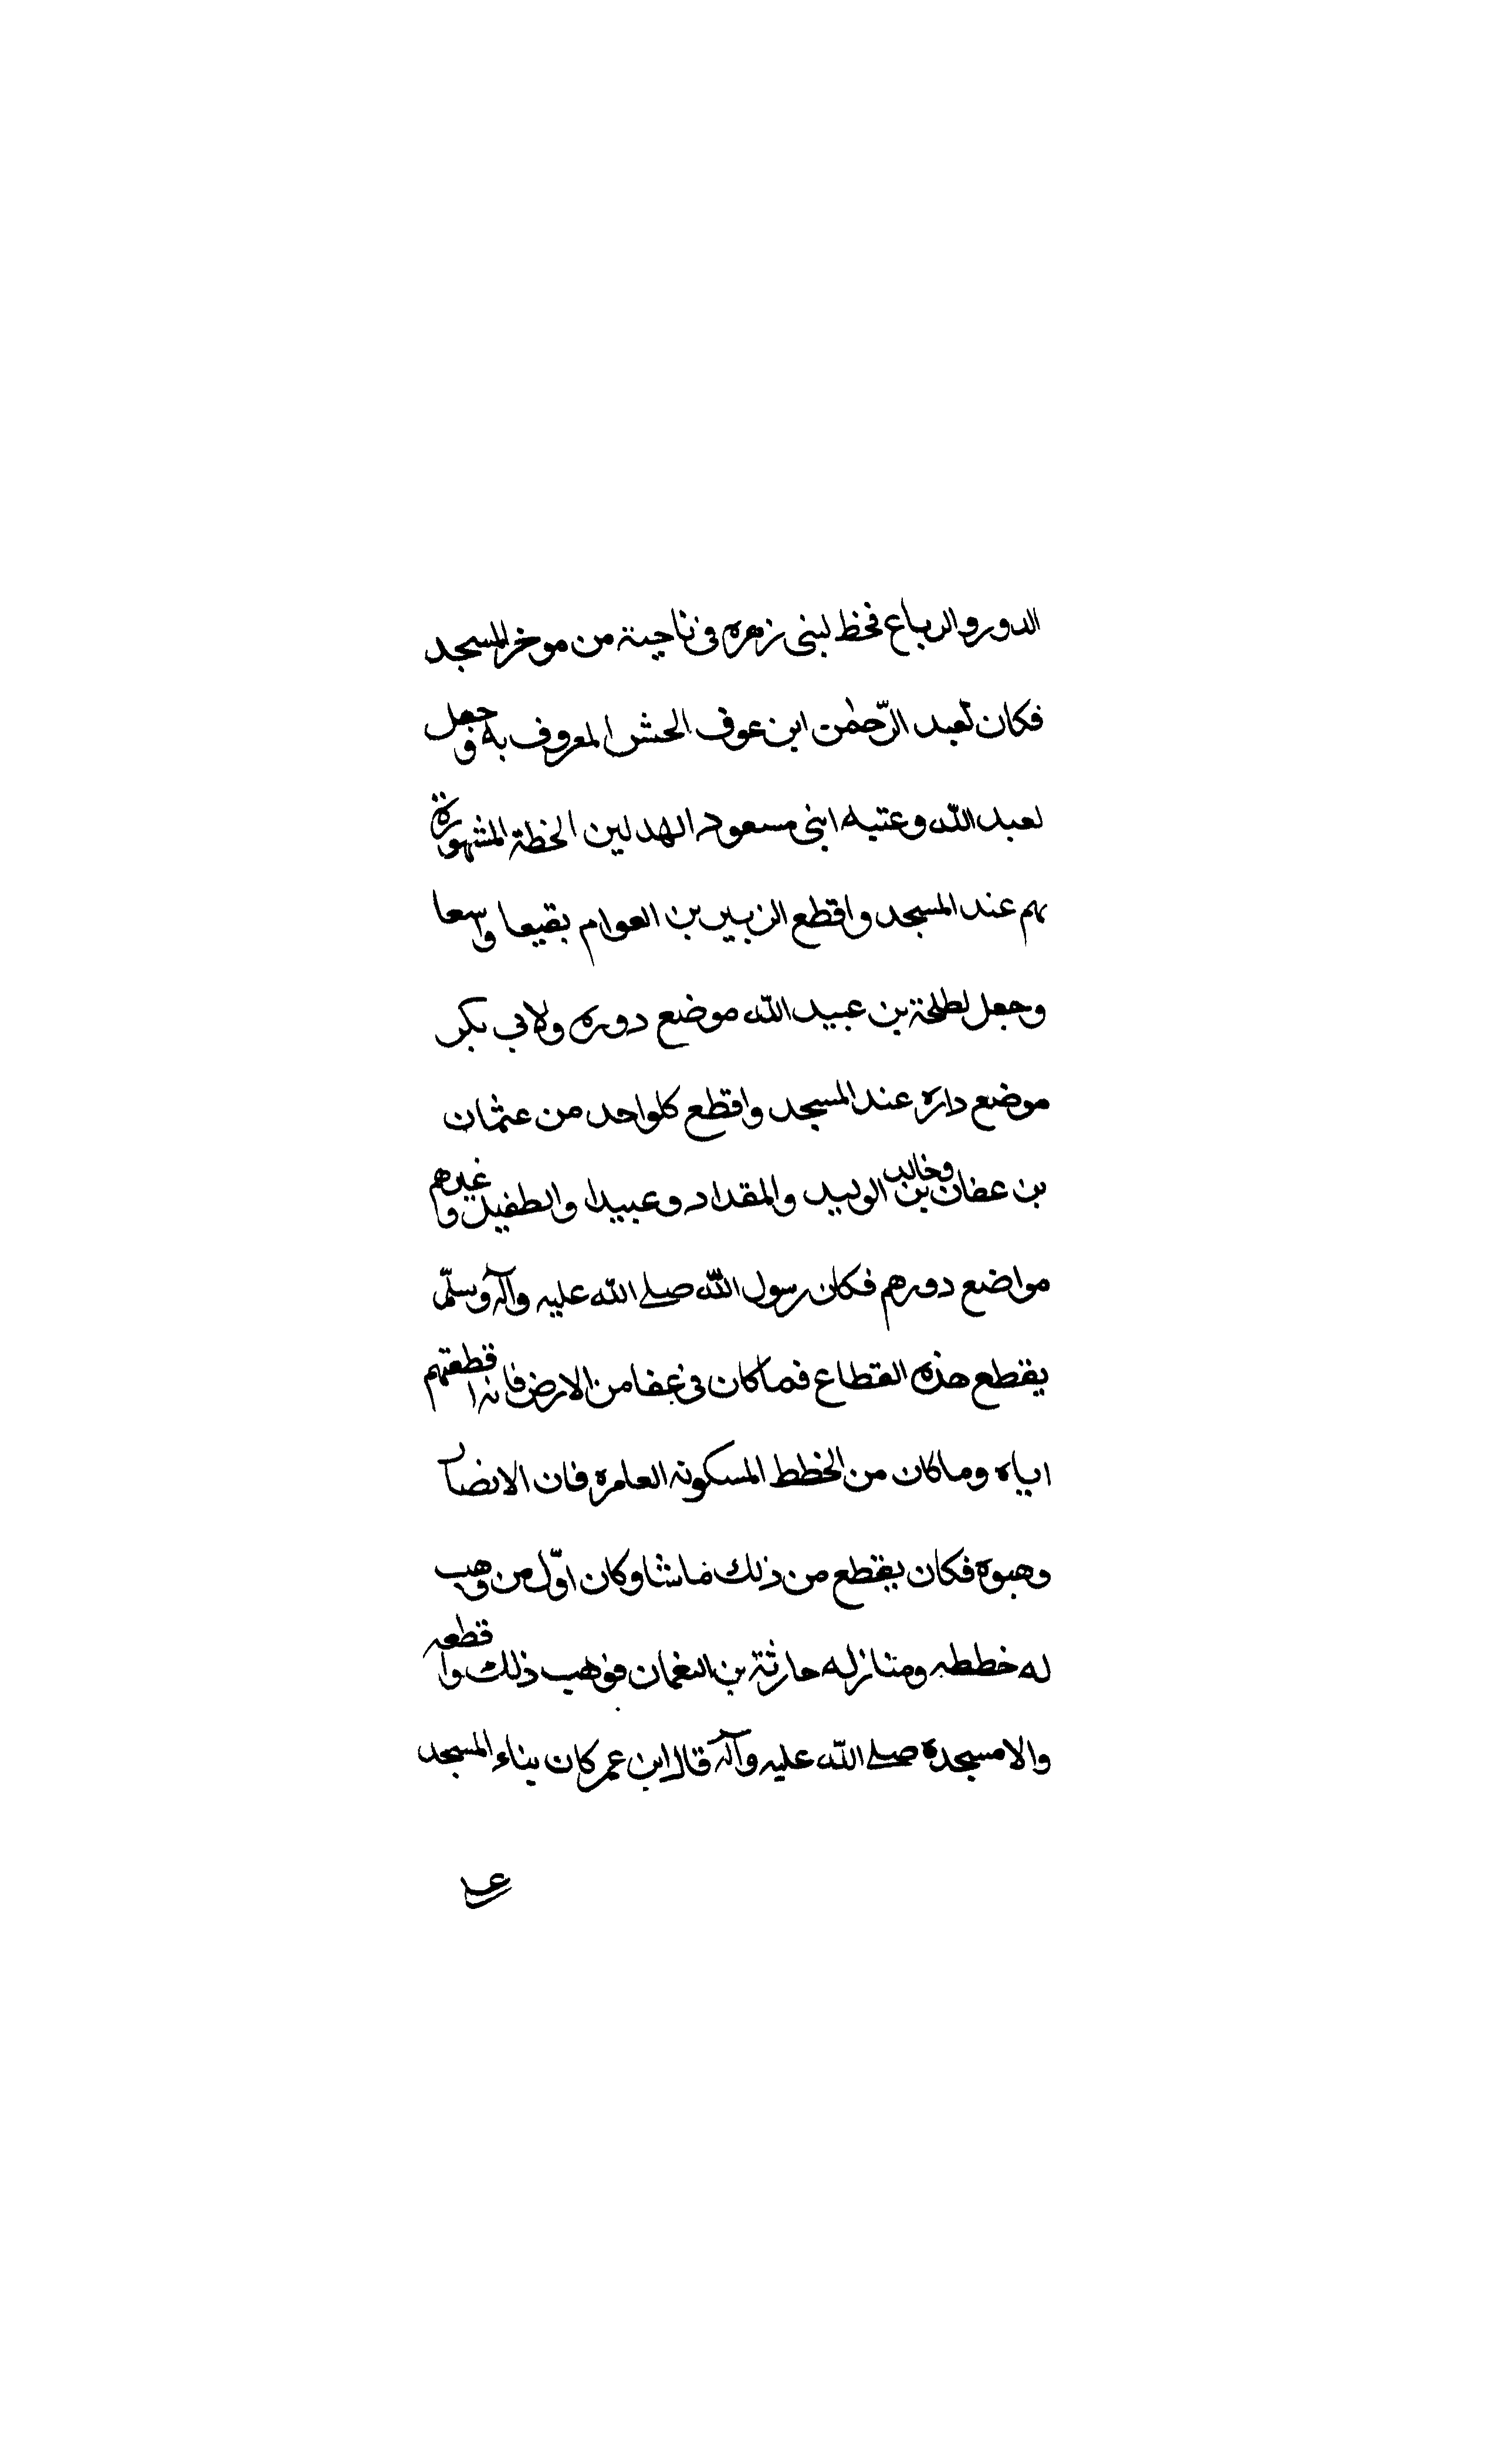 الدور والرباع فخط لبنى زهره فى ناحية من موخر المسجد
فكان لعبد الرّحمٰن ابن عوف الحش المعروف به وجعل
لعبد اللّه وعتبه ابنى مسعود الهدلين الخطة المشهورة
بهم عند المسجد واقطع الزبير بن العوام بقيعا واسعا
وجعل لطلحة بن عبيد اللّه موضع دوره ولابي بكر
موضع داره عند المسجد واقطع كلواحد من عثمان
بن عفان وخالد بن الوليد والمقداد وعبيدا والطفيل وغيرهم
مواضع دورهم فكان رسول اللّه صلے اللّه عليه وآله وسلّم
يقطع هذه القطاع فما كان فى عفا من الارض فانه اقطعتهم
اياه وما كان من الخطط المسكونه العامره فان الانصار
وهبوه فكان يقطع من ذلك ماشا وكان اوّل من وهب
له خططه ومنازله حارثة بن النعمان فوهب ذلك واقطعه
والا مسجده صلے اللّه عليه وآله قال ابن عمر كان بناء المسجد